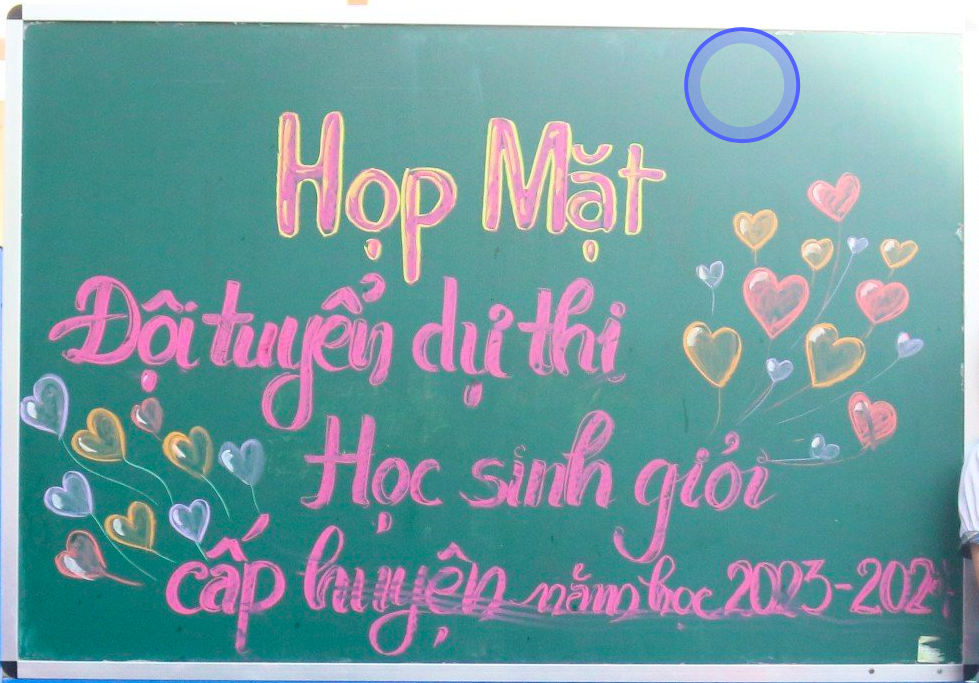 Họp Mặt
Đội tuyển dự thi
Học sinh giỏi
cấp huyện năm học 2023-202